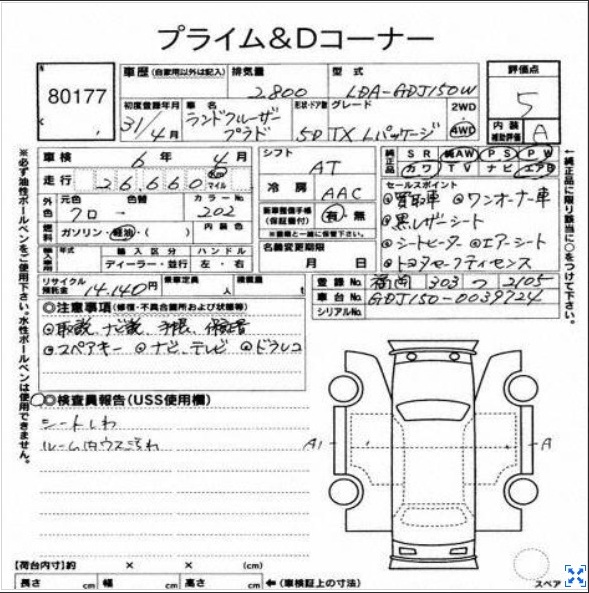 プライム&Dコーナー
80177
車歴 (自家用以外は記入) 排気量 型式
2.800 LDA-GDJ150W
初度登録年月 車名 形状・ドア数 グレード 2WD
31/4月 ランドクルーザープラド 5D TX Lパッケージ 4WD
評価点
5
内装 補助評価 A
車検 6年 4月
走行 26,660 Km マイル
外色 元色 色替 カラーNo.
クロ 202
燃料 ガソリン・軽油・( ) 内装色
年式 輸入区分 ハンドル
ディーラー・並行 左・右
シフト
AT
冷房 AAC
新車整備手帳 (保証書付) 有・無
※車検と一緒に保管下さい。
名義変更期限
月 日
純正品 SR 純AW PS PW
カワ TV ナビ エアB
セールスポイント
◎買取車 ◎ワンオーナー車
◎黒レザーシート
◎シートヒーター ◎エアーシート
◎トヨタセーフティセンス
リサイクル預託金 14.140円 乗車定員 人 積載量 t
登録No. 福岡 303 つ 2105
車台No. GDJ150-0039724
シリアルNo.
◎注意事項(修復・不具合箇所および状態等)
◎取説、ナビ説、手帳、保証書
◎スペアキー ◎ナビ、テレビ ◎ドラレコ
◎検査員報告(USS使用欄)
シートしわ
ルーム内ウス汚れ
A1 A
スペア
【荷台内寸】約 × × (cm)
長さ cm 幅 cm 高さ cm ←(車検証上の寸法)
※必ず油性ボールペンをご使用下さい。水性ボールペンは使用できません。
←純正品に限り該当に○をつけて下さい。